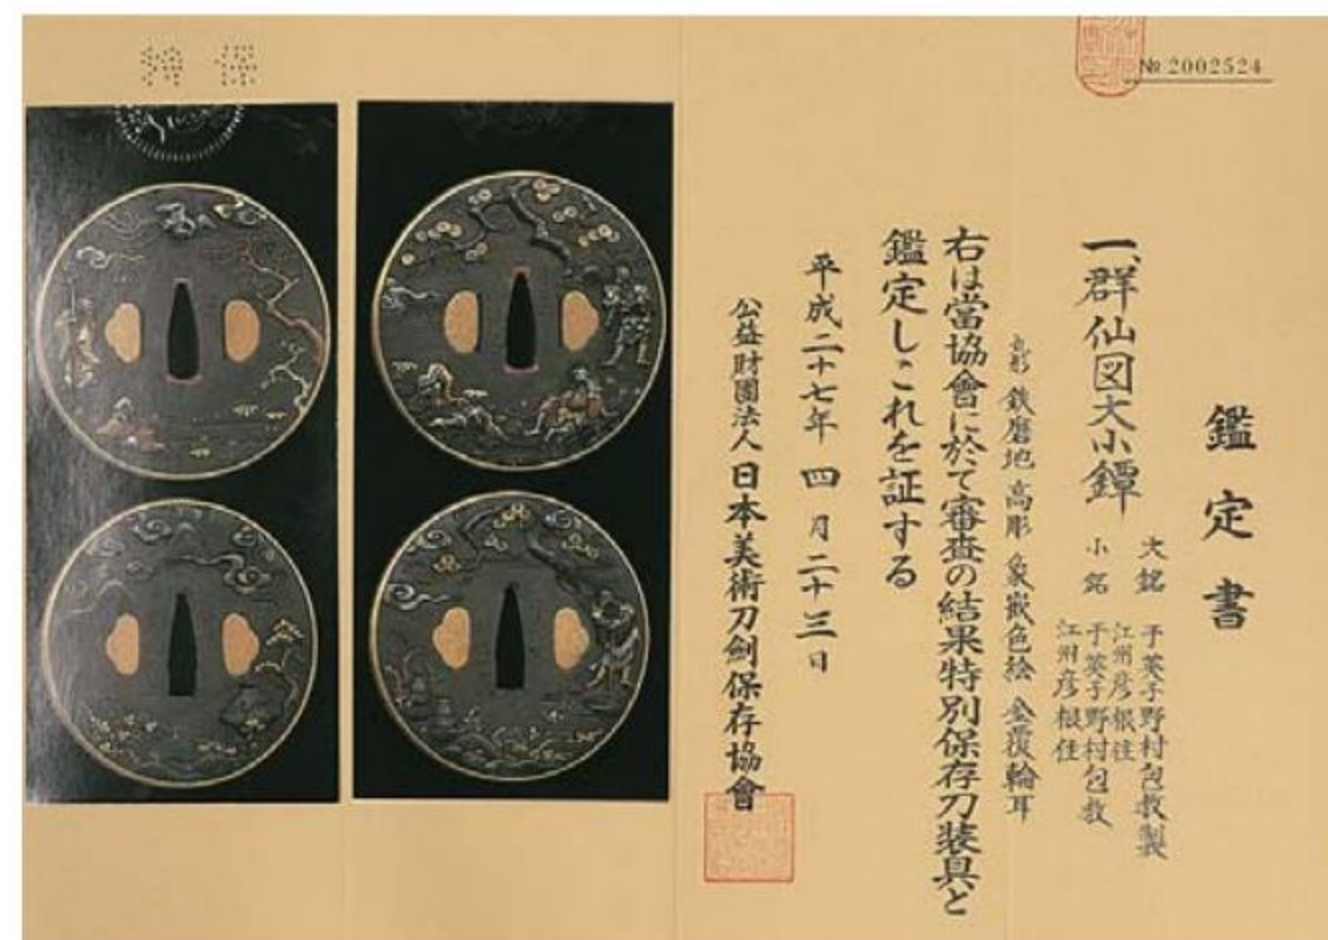 № 2002524
鑑定書
一、群仙図大小鐔
大銘 于英子野村包教製
江州彦根住
小銘 于英子野村包教
江州彦根住
丸形 鉄磨地 高彫 象嵌色絵 金覆輪耳
右は當協會に於て審査の結果特別保存刀装具と
鑑定しこれを証する
平成二十七年四月二十三日
公益財團法人日本美術刀劍保存協會